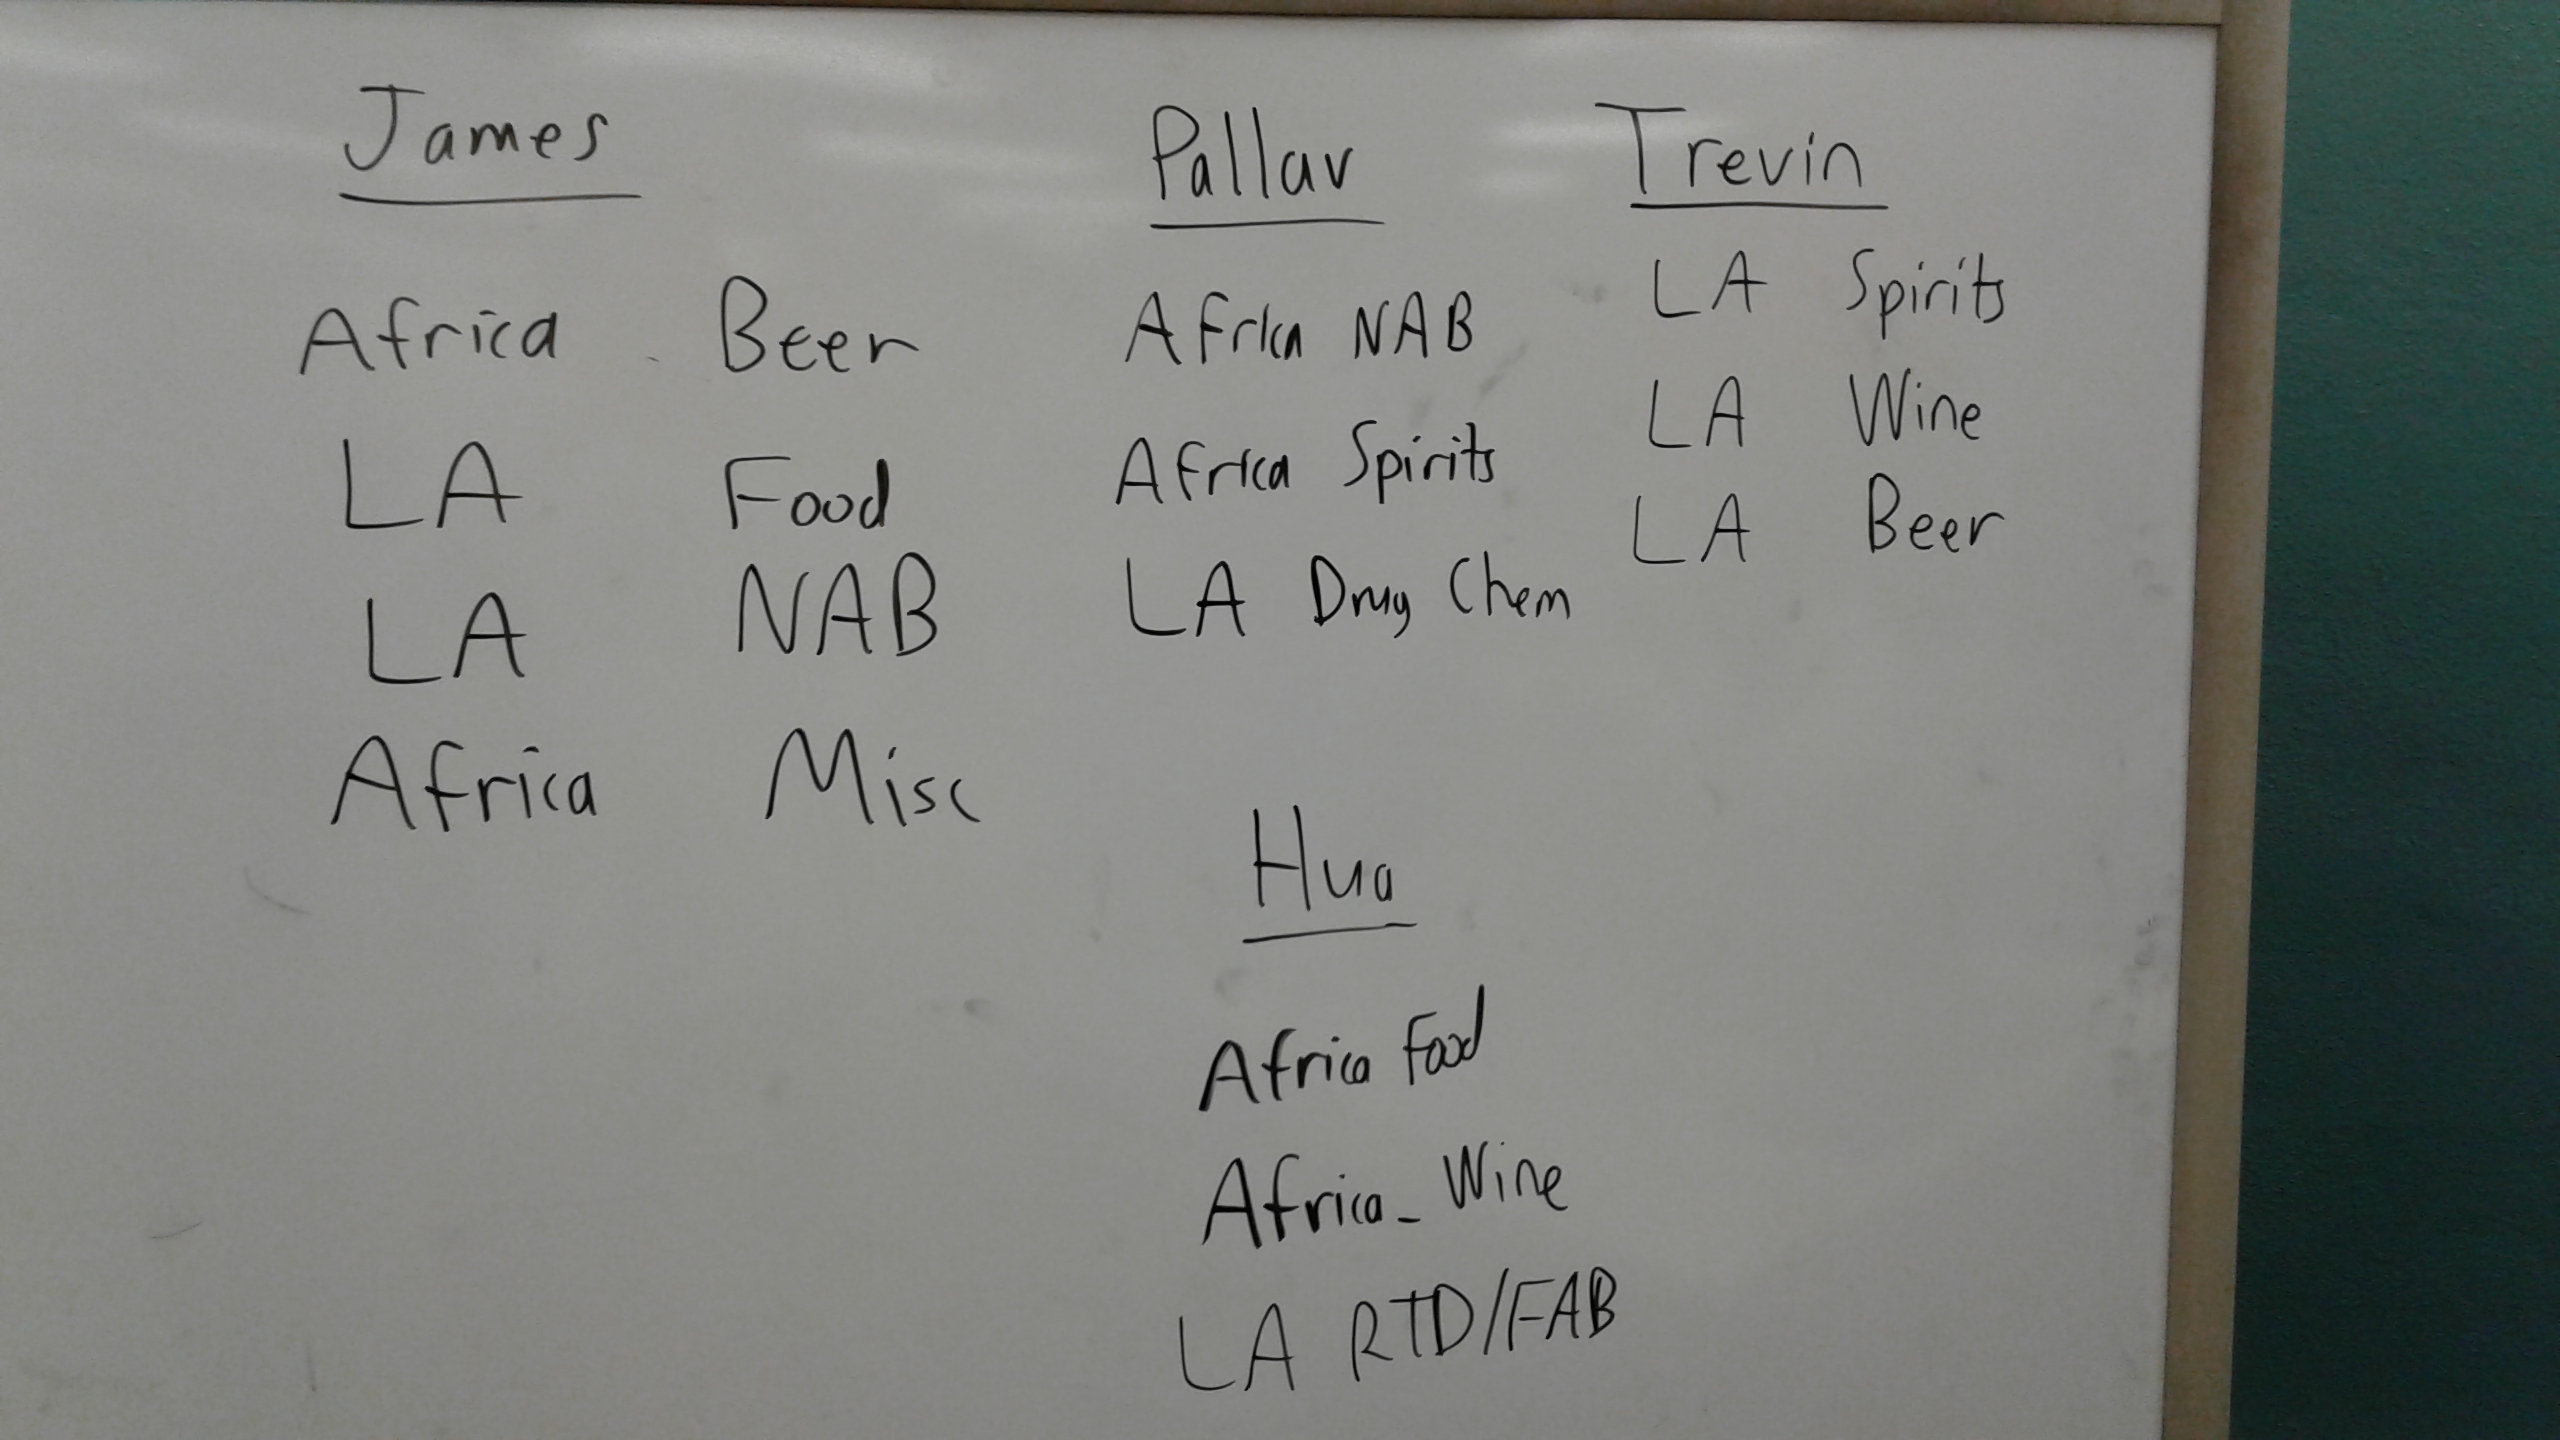 James
Africa Beer
LA Food
LA NAB
Africa Misc
Pallav
Africa NAB
Africa Spirits
LA Drug Chem
Trevin
LA Spirits
LA Wine
LA Beer
Hua
Africa Food
Africa - Wine
LA RTD/FAB